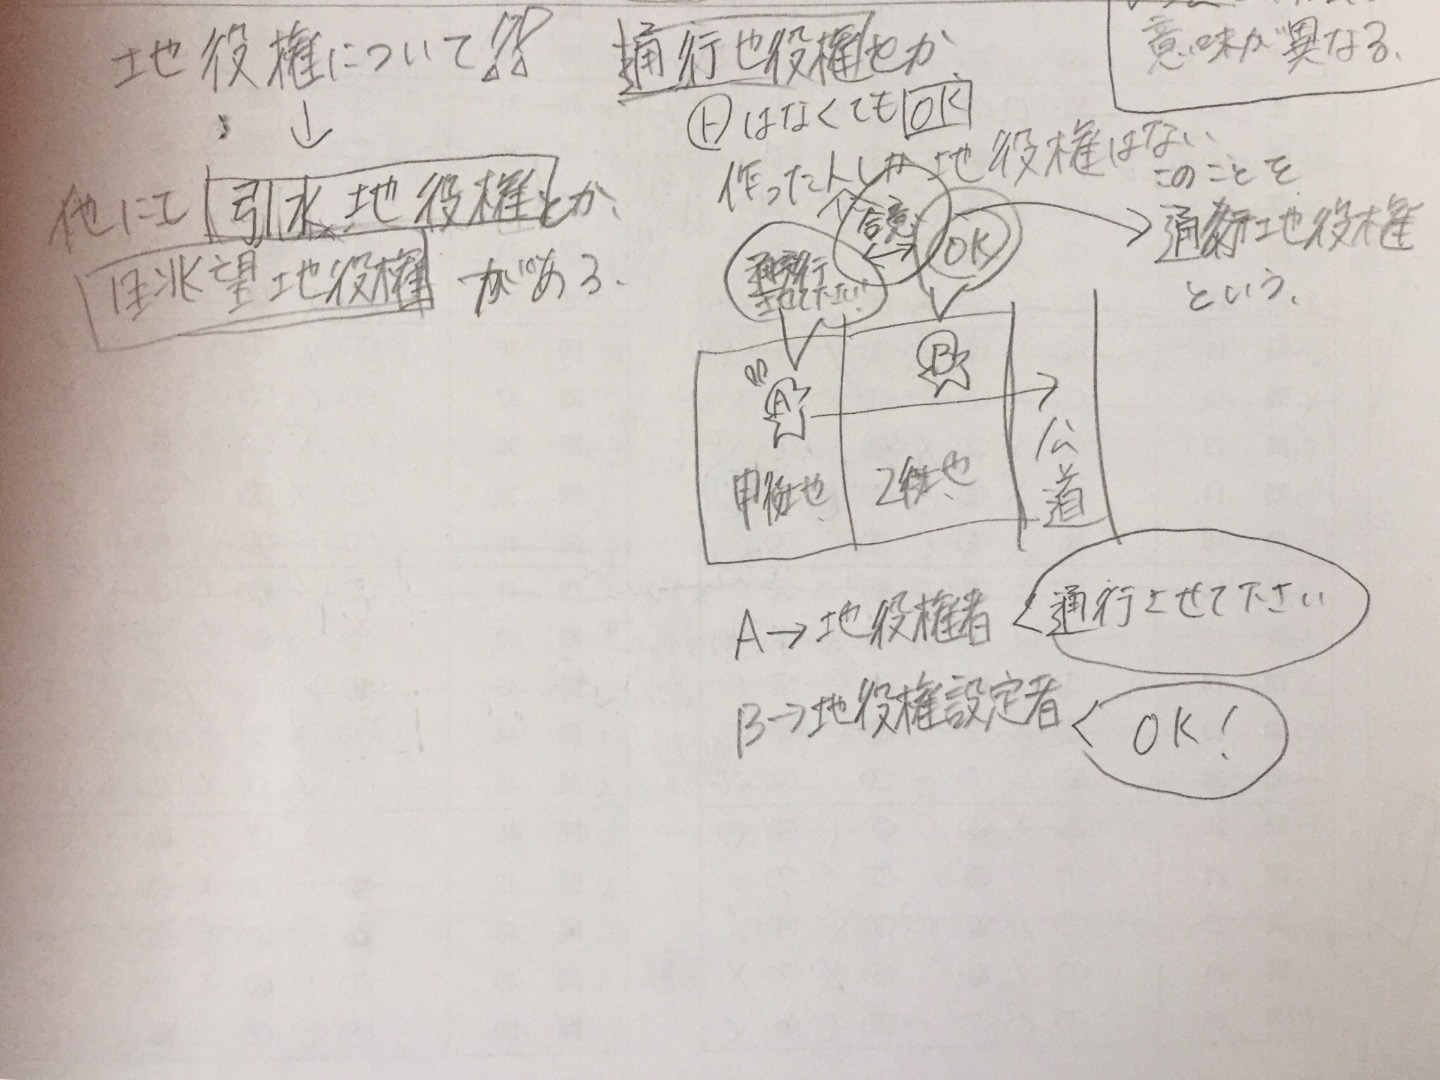 意味が異なる。
地役権について!?
↓
他に 引水地役権とか、
眺望地役権 がある。
通行地役権とか
㊤はなくてもOK
作った人しか地役権はない
このことを
通行地役権
という。
合意
OK
通行
させて下さい!
A
B
甲後地
乙後地
公道
A→地役権者
通行させて下さい
B→地役権設定者
OK!